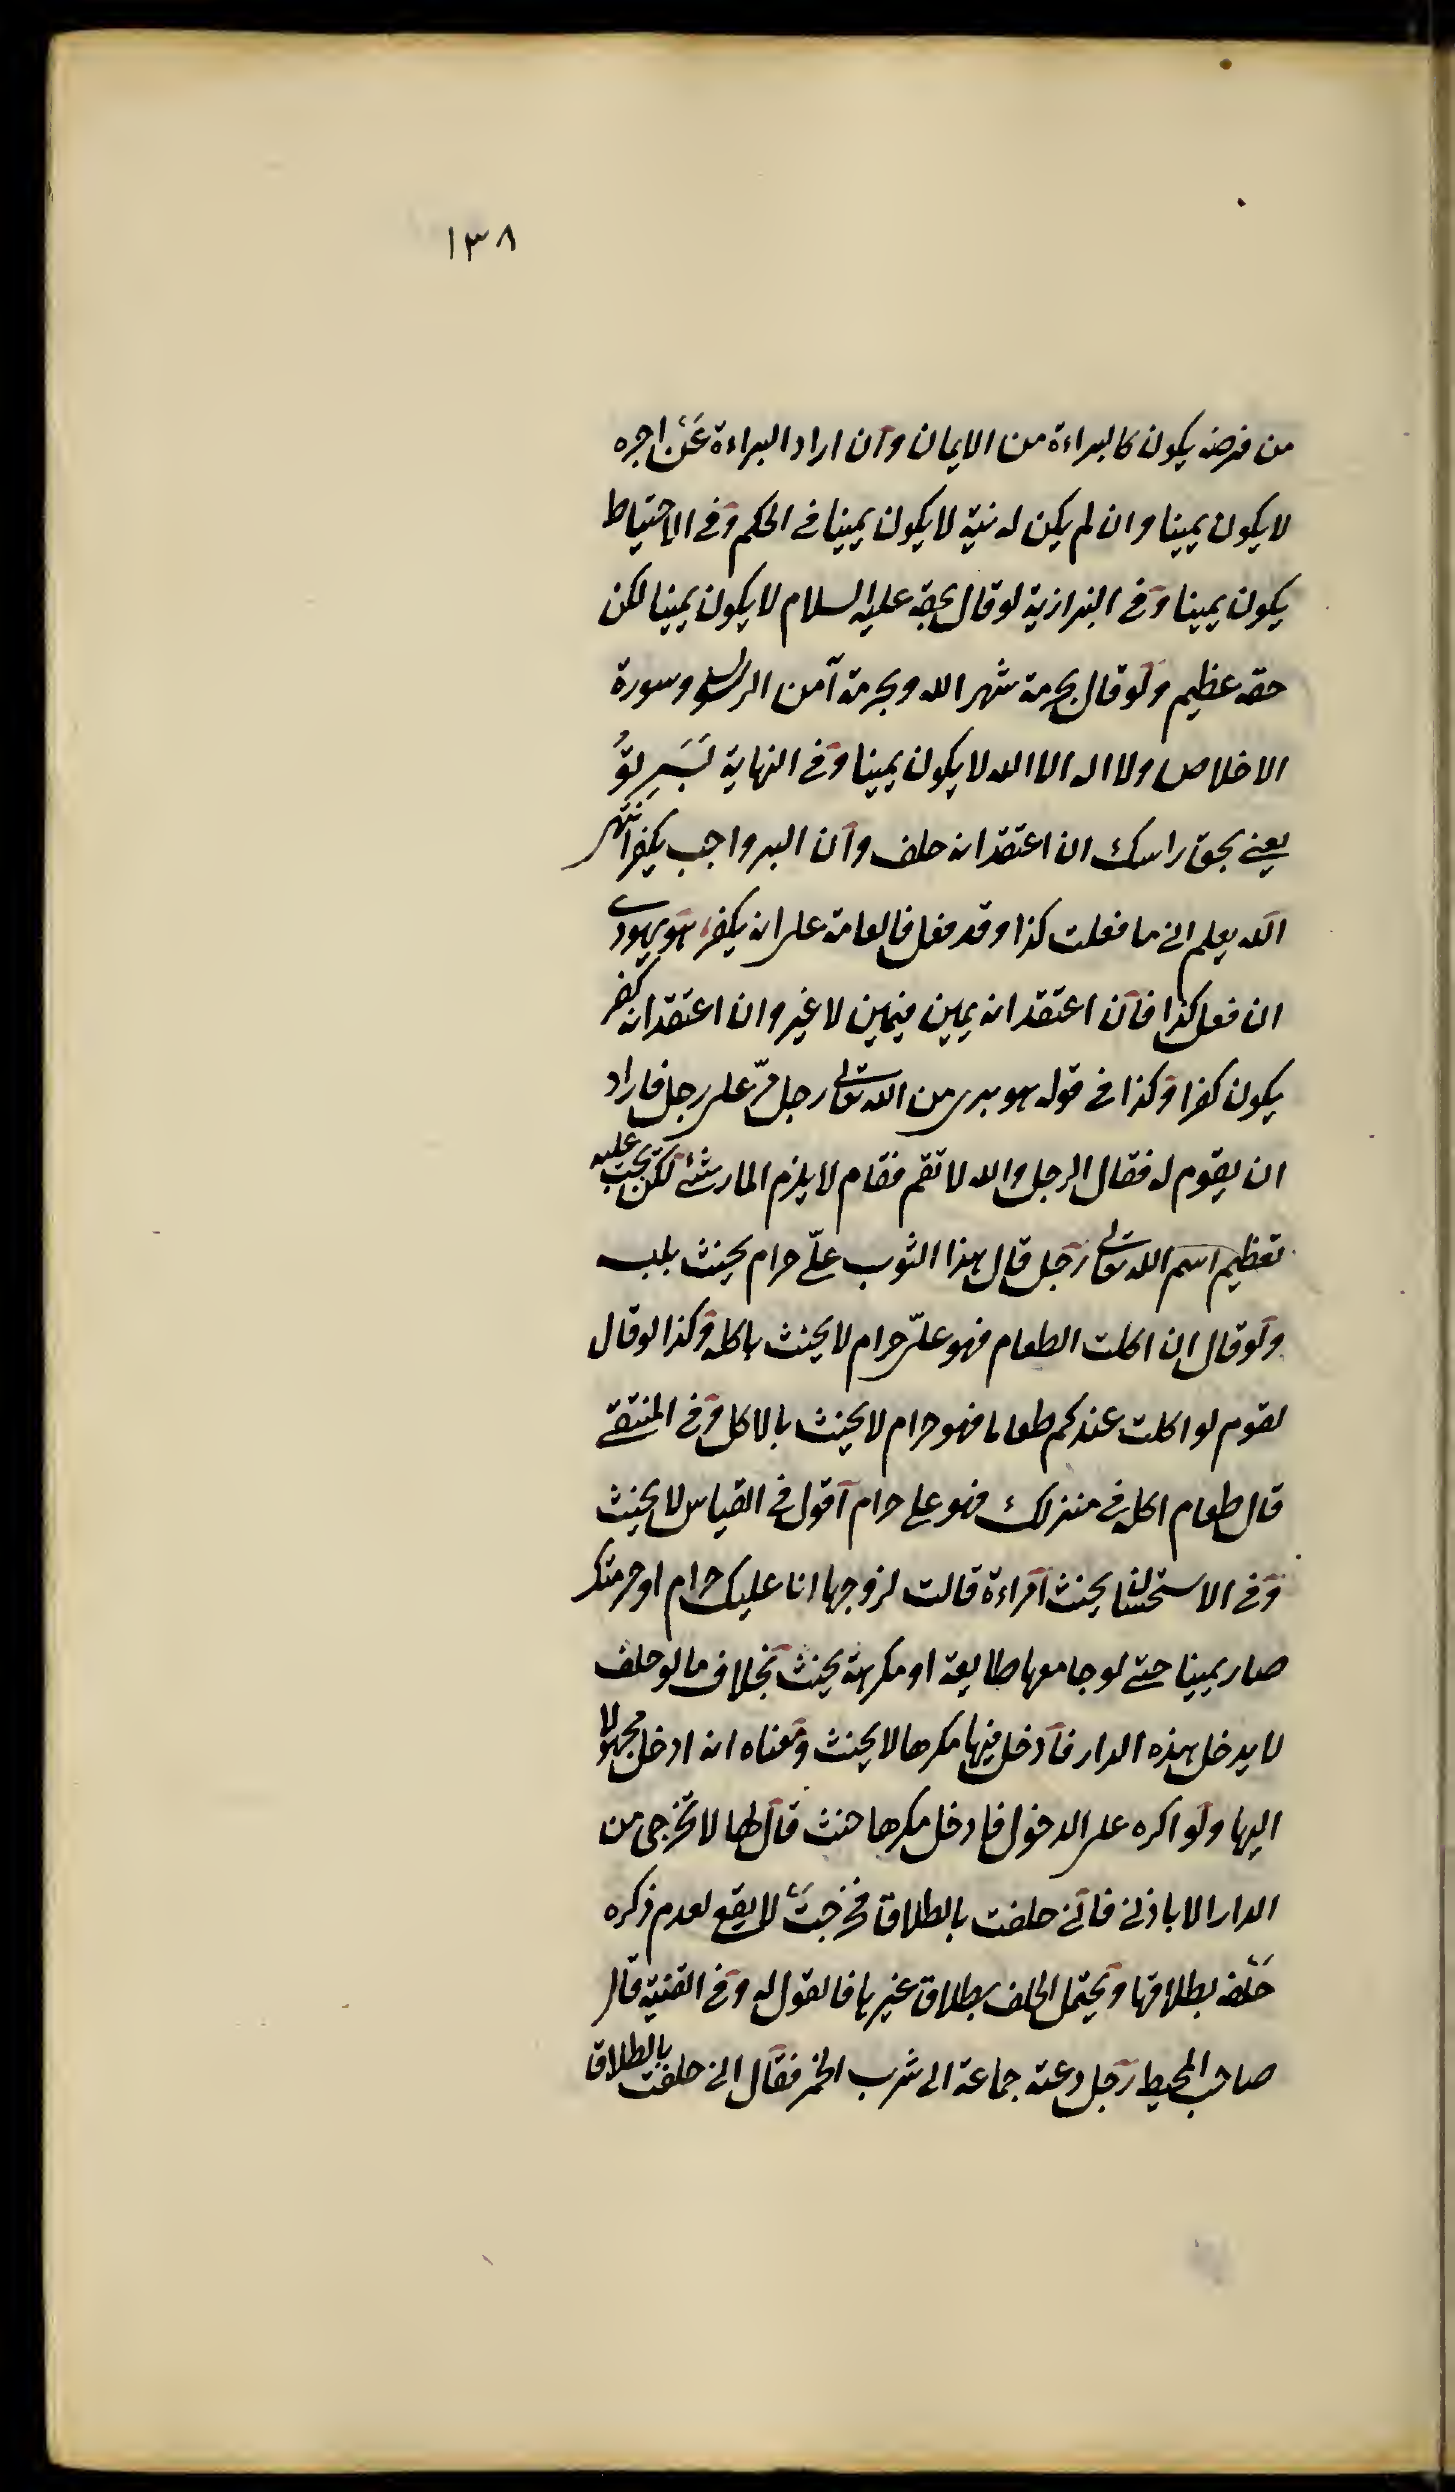 ١٣٨
من فرضه يكون كالبراءة من الايمان وان اراد البراءة عن اجره
لا يكون يمينا وان لم يكن له نية لا يكون يمينا فى الحكم وفى الاحتياط
يكون يمينا وفى البزازية لو قال بحقه عليه السلام لا يكون يمينا لكن
حقه عظيم ولو قال بحرمة شهر الله وبحرمة آمن الرسول وسورة
الاخلاص ولا اله الا الله لا يكون يمينا وفى النهاية بَسَرِ تُو
يعنى بحق راسك ان اعتقد انه حلف وان البر واجب يكفر انتهى
الله يعلم انى ما فعلت كذا وقد فعل فالعامة على انه يكفر، هو يهودى
ان فعل كذا فان اعتقد انه يمين فيمين لا غير وان اعتقد انه كفر
يكون كفرا وكذا فى قوله هو برى من الله تعالى رجل مرّ على رجل فاراد
ان يقوم له فقال الرجل والله لا تقم فقام لا يلزم المار شئ لكن يجب عليه
تعظيم اسم الله تعالى رجل قال هذا الثوب علىّ حرام يحنث بلبسه
ولو قال ان اكلت الطعام فهو علىّ حرام لا يحنث باكله وكذا لو قال
لقوم لو اكلت عندكم طعاما فهو حرام لا يحنث بالاكل وفى المنتقى
قال طعام اكله فى منزلك فهو على حرام اقول فى القياس لا يحنث
وفى الاستحسان يحنث امراءة قالت لزوجها انا عليك حرام او حرمتك
صار يمينا حتى لو جامعها طايعة او مكرهة يحنث بخلاف ما لو حلف
لا يدخل هذه الدار فادخل فيها مكرها لا يحنث ومعناه انه ادخل محمولا
اليها ولو اكره على الدخول فادخل مكرها حنث قال لها لا تخرجى من
الدار الا باذنى فانى حلفت بالطلاق فخرجت لا يقع لعدم ذكره
حلفه بطلاقها ويحتمل الحلف بطلاق غيرها فالقول له وفى القنية قال
صاحب المحيط رجل دعته جماعة الى شرب الخمر فقال انى حلفت بالطلاق